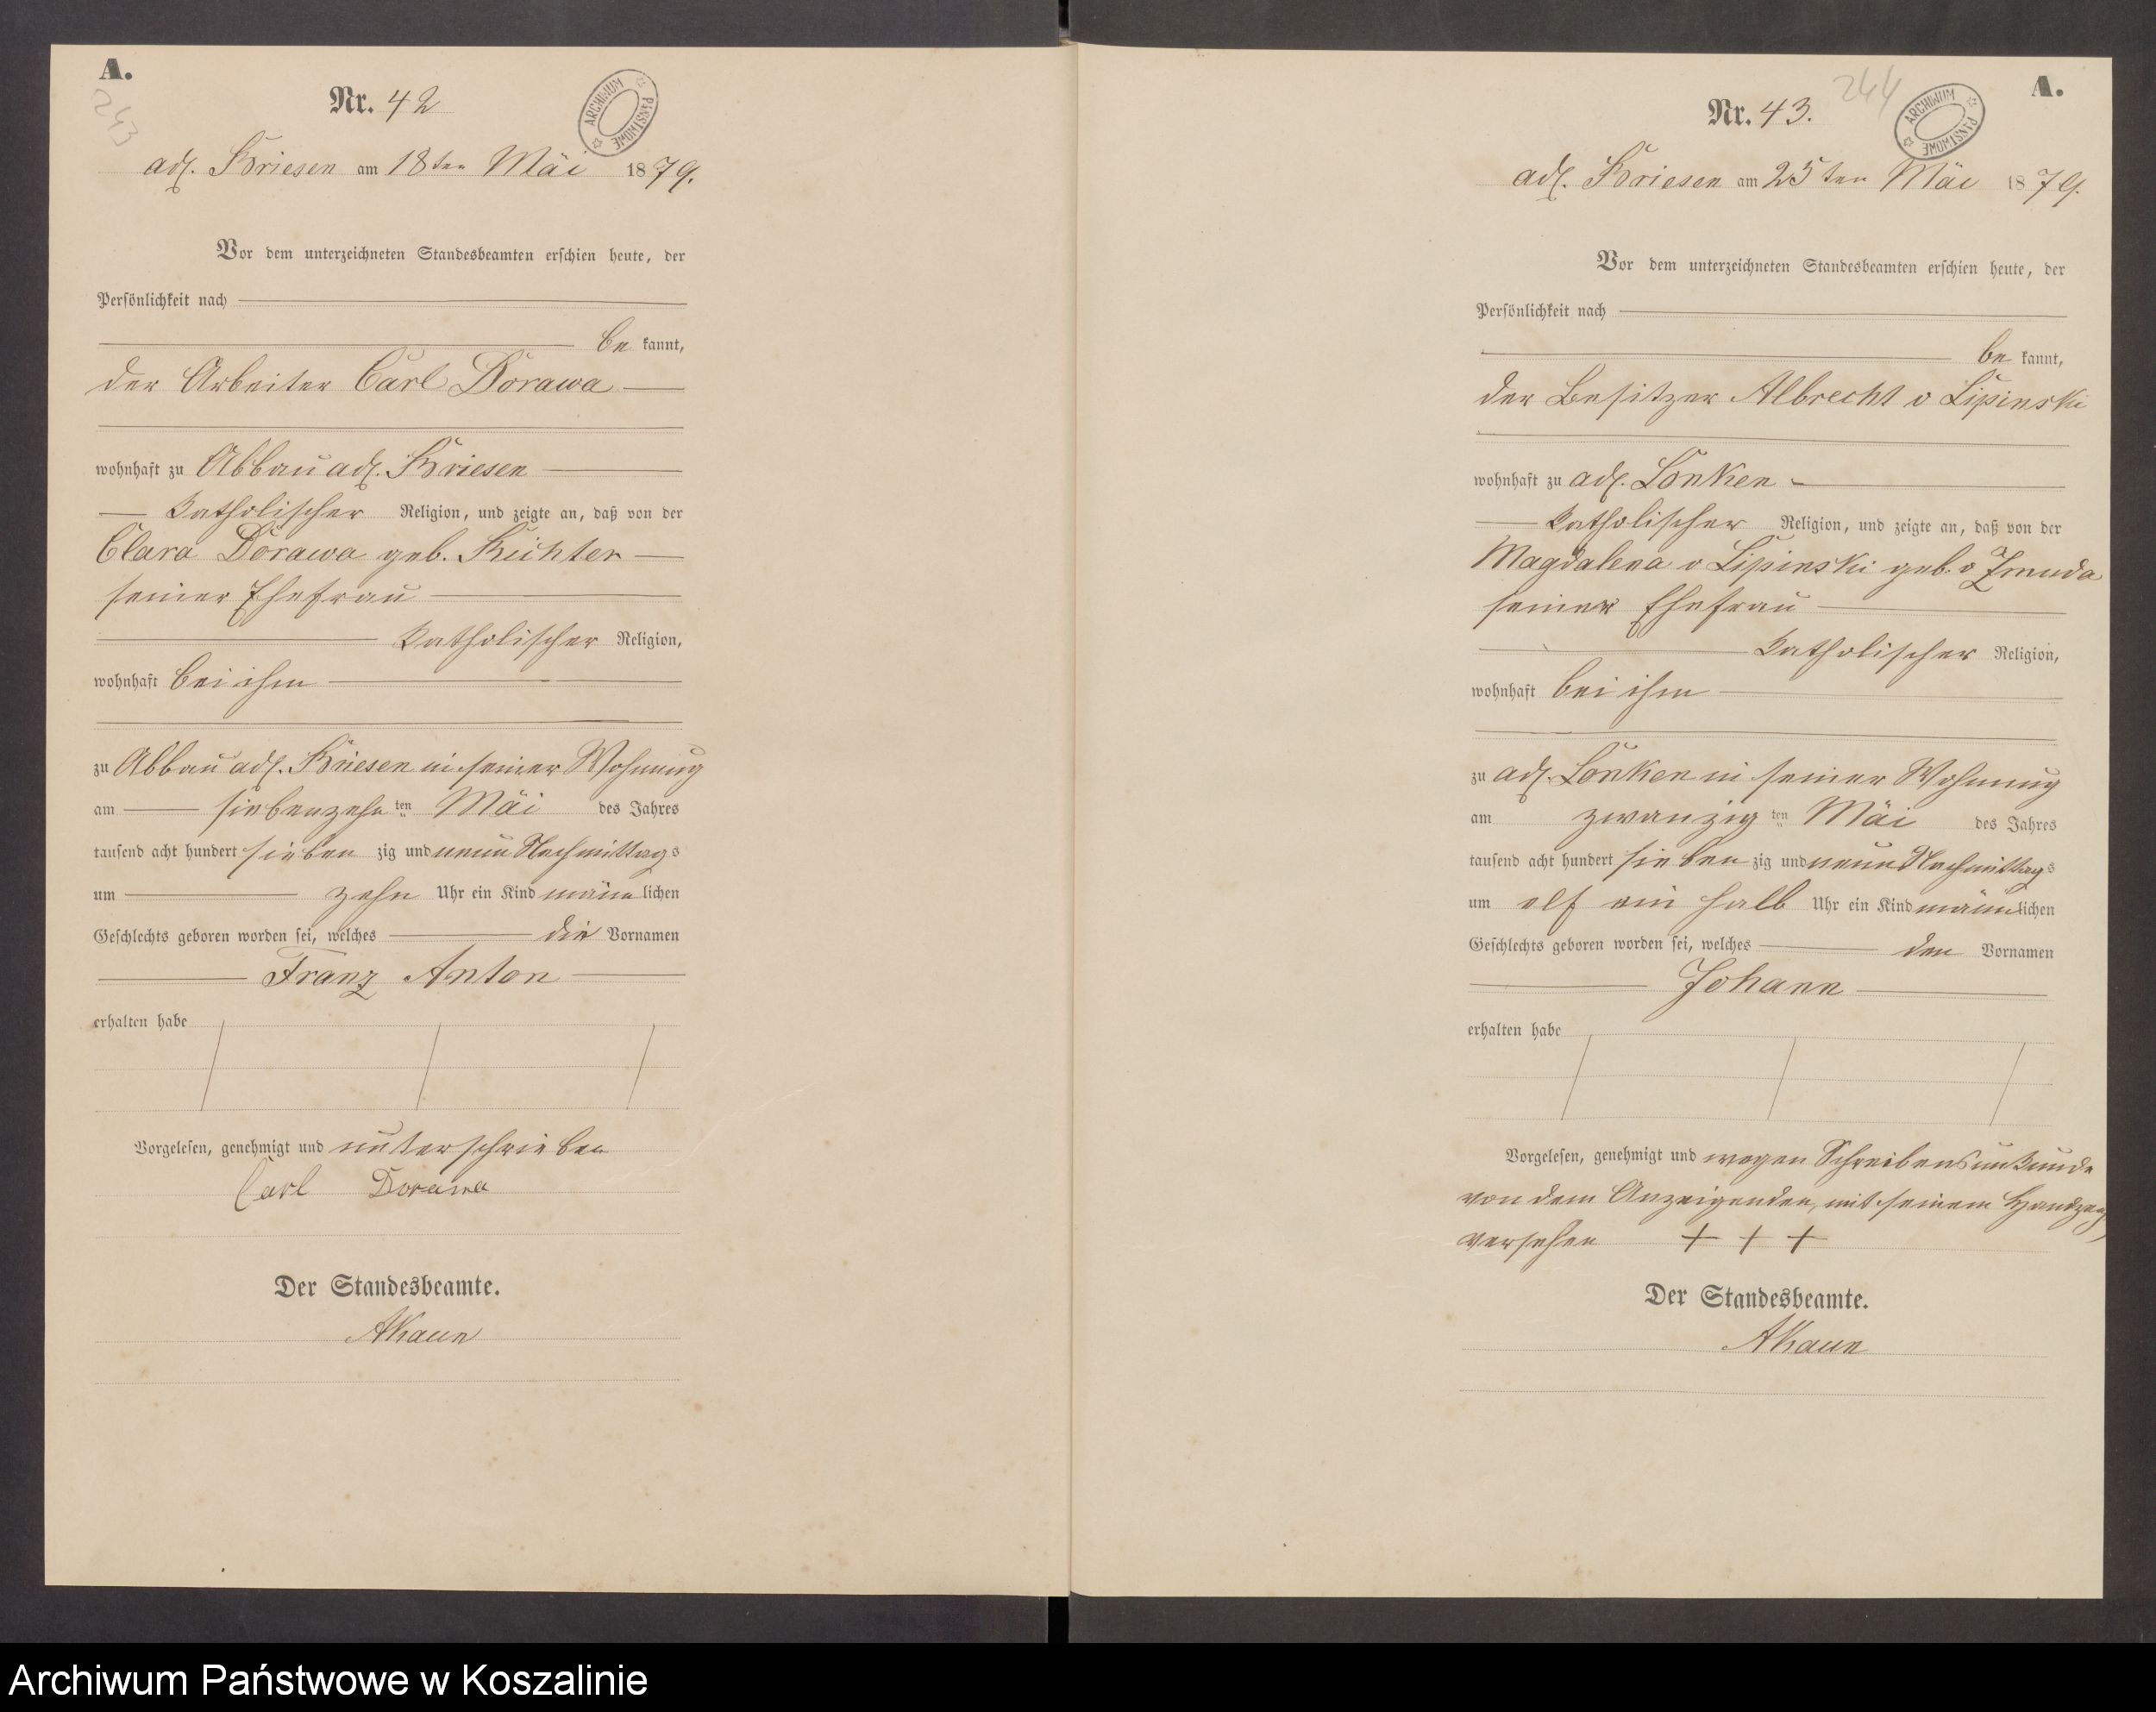 A.
243
Nr. 42
ARCHIWUM PAŃSTWOWE
adl. Briesen am 18ten Mai 1879.
Vor dem unterzeichneten Standesbeamten erschien heute, der
Persönlichkeit nach
be kannt,
der Arbeiter Carl Dorawa
wohnhaft zu Abbau adl. Briesen
katholischer Religion, und zeigte an, daß von der
Clara Dorawa geb. Richter
seiner Ehefrau
katholischer Religion,
wohnhaft bei ihm
zu Abbau adl. Briesen in seiner Wohnung
am siebenzehn ten Mai des Jahres
tausend acht hundert sieben zig und neun Nachmittags
um zehn Uhr ein Kind männlichen
Geschlechts geboren worden sei, welches die Vornamen
Franz Anton
erhalten habe
Vorgelesen, genehmigt und unterschrieben
Carl Dorawa
Der Standesbeamte.
244
A.
Nr. 43.
ARCHIWUM PAŃSTWOWE
adl. Briesen am 25ten Mai 1879.
Vor dem unterzeichneten Standesbeamten erschien heute, der
Persönlichkeit nach
be kannt,
der Besitzer Albrecht v Lipinski
wohnhaft zu adl. Lonken
katholischer Religion, und zeigte an, daß von der
Magdalena v Lipinski geb. v Zmuda
seiner Ehefrau
katholischer Religion,
wohnhaft bei ihm
zu adl. Lonken in seiner Wohnung
am zwanzig ten Mai des Jahres
tausend acht hundert sieben zig und neun Nachmittags
um elf ein halb Uhr ein Kind männlichen
Geschlechts geboren worden sei, welches den Vornamen
Johann
erhalten habe
Vorgelesen, genehmigt und wegen Schreibensunkunde
von dem Anzeigenden, mit seinem Handzeich
versehen + + +
Der Standesbeamte.
Archiwum Państwowe w Koszalinie